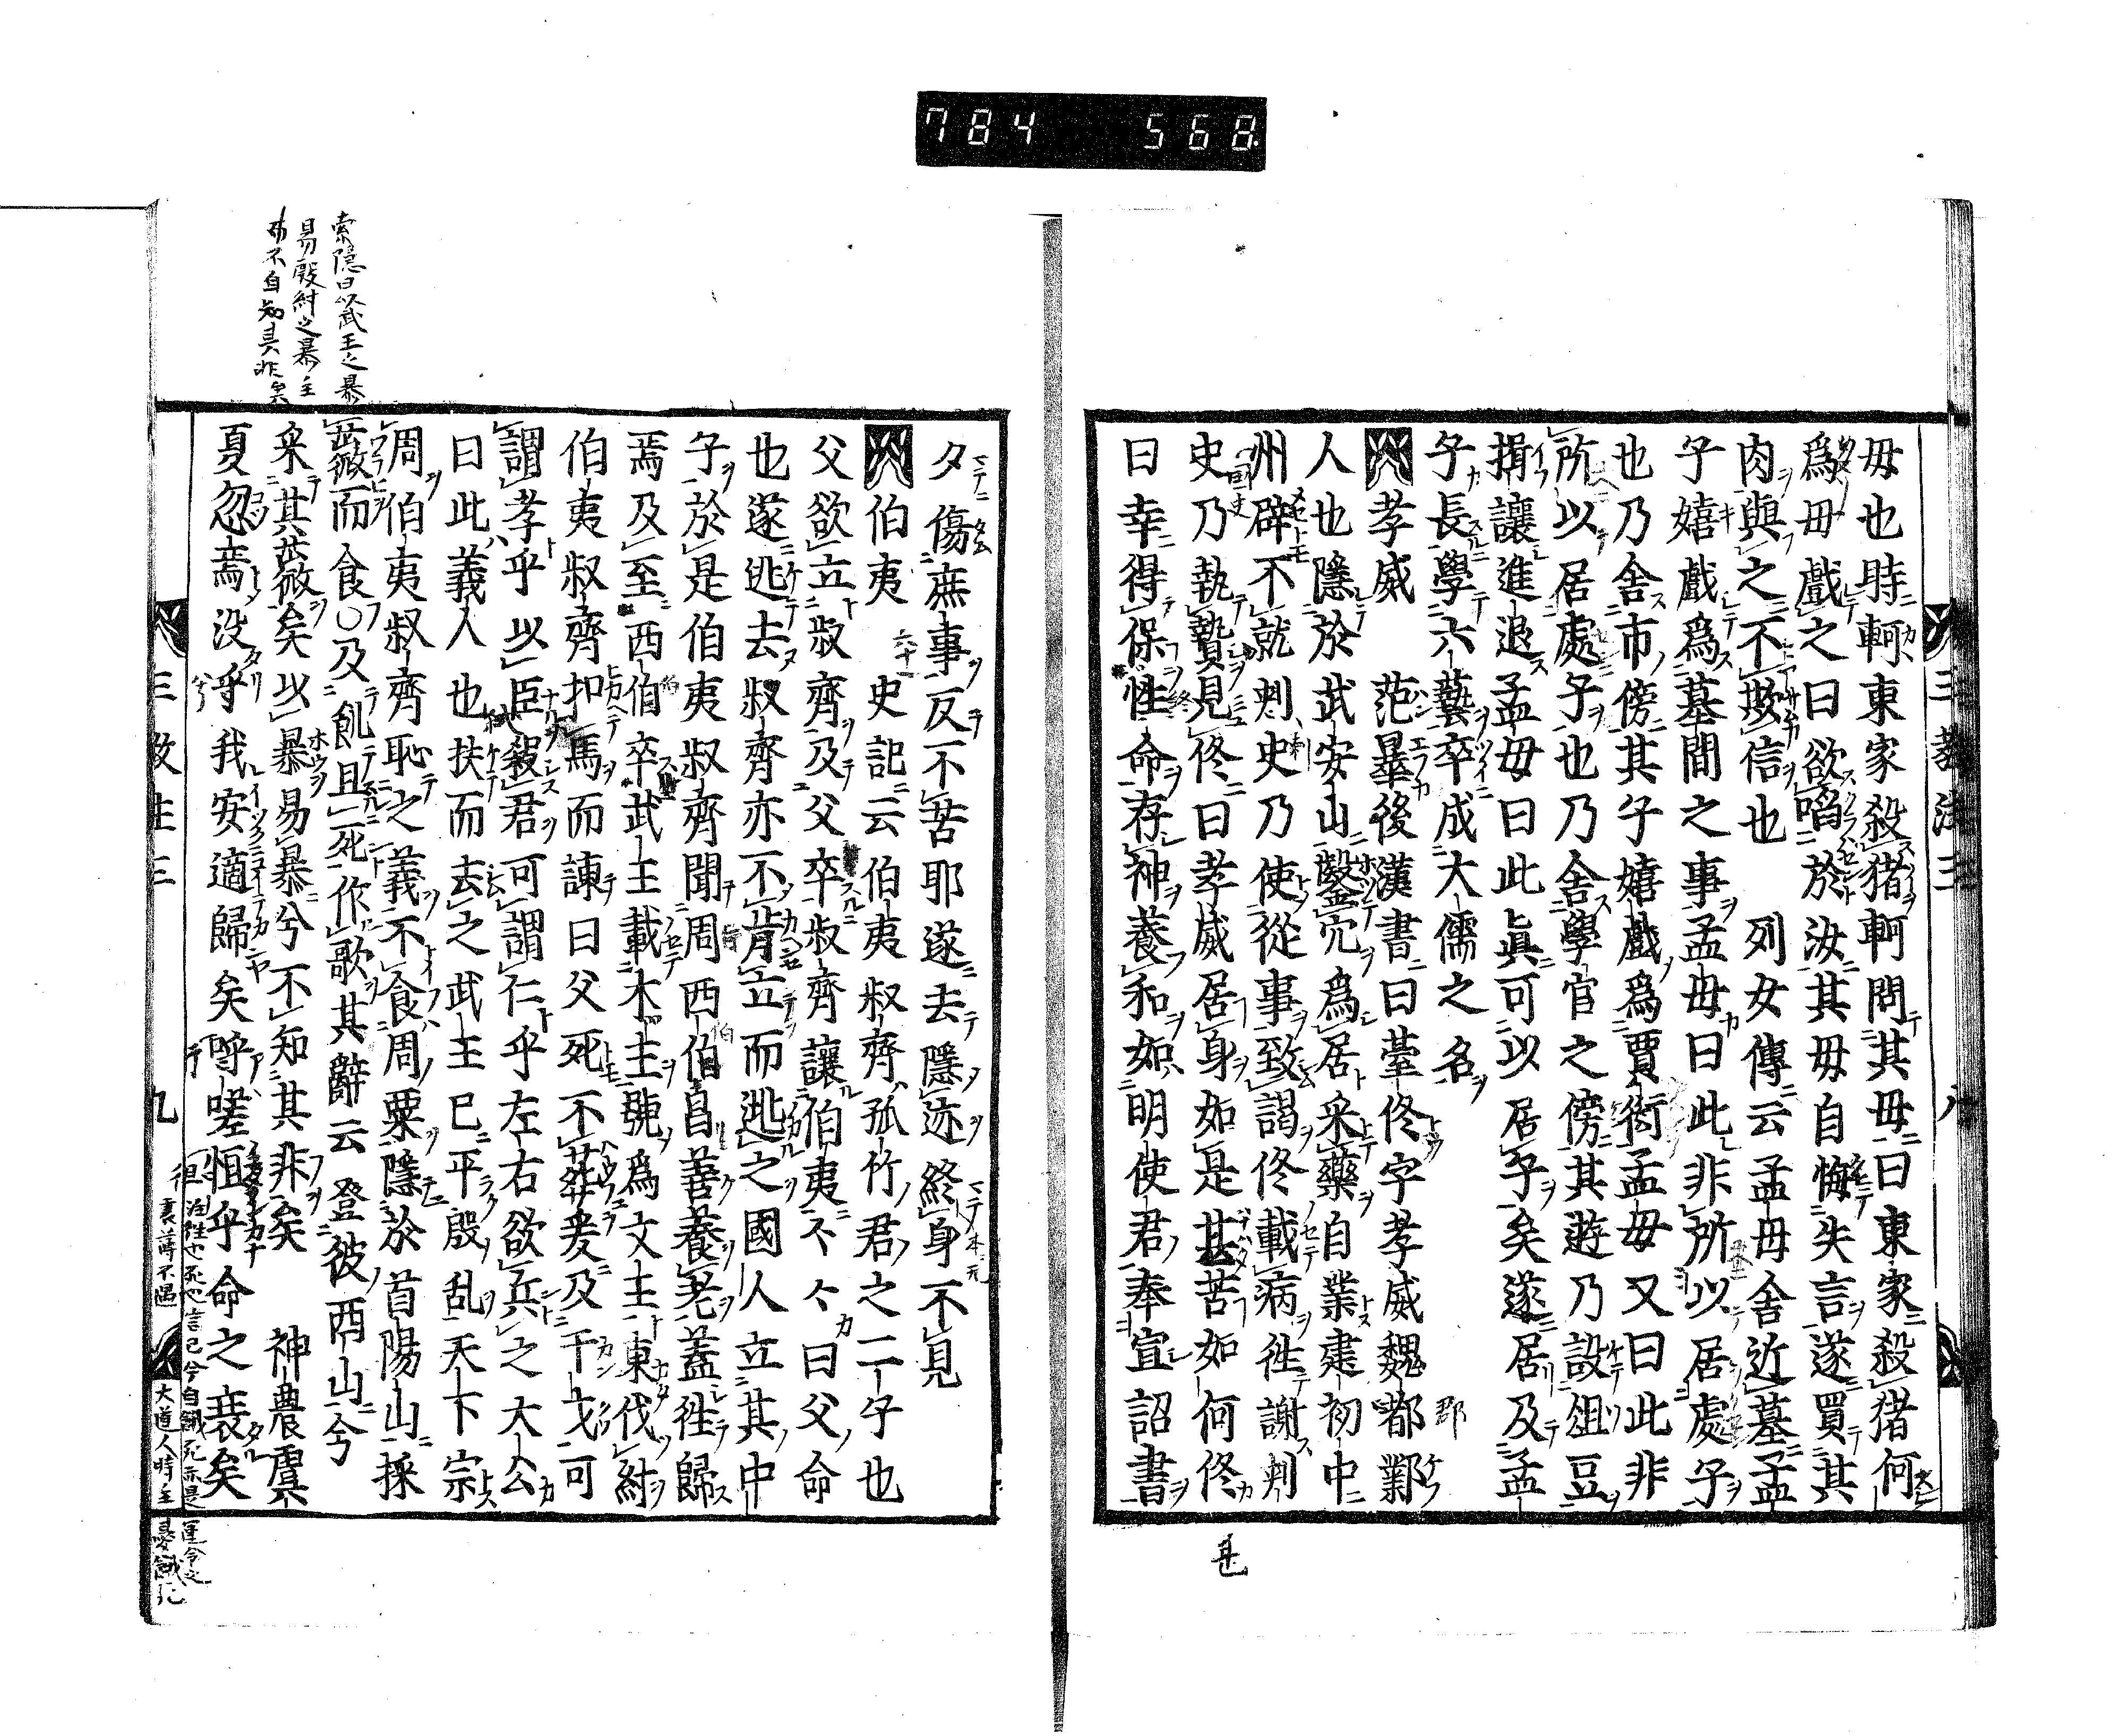 784 568
母也時軻東家殺猪軻問其母曰東家殺猪何
爲母戲之曰欲啗於汝其母自悔失言遂買其
肉與之不欺信也 列女傳云孟母舍近墓孟
子嬉戲爲墓間之事孟母曰此非所以居處子
也乃舍市傍其子嬉戲爲賈衒孟母又曰此非
所以居處子也乃舍學官之傍其遊乃設俎豆
揖讓進退孟母曰此眞可以居子矣遂居及孟
子長學六藝卒成大儒之名
孝威 范曄後漢書曰臺佟字孝威魏都鄴
人也隱於武安山鑿穴爲居采藥自業建初中
州辟不就刾史乃使從事致謁佟載病徃謝刾
史乃執贄見佟曰孝威居身如是甚苦如何佟
曰幸得保性命存神養和如明使君奉宣詔書
三教注三 八
夕傷庶事反不苦耶遂去隱迹終身不見
伯夷 史記云伯夷叔齊孤竹君之二子也
父欲立叔齊及父卒叔齊讓伯夷々々曰父命
也遂逃去叔齊亦不肯立而逃之國人立其中
子於是伯夷叔齊聞周西伯昌善養老蓋徃歸
焉及至西伯卒武王載木主號爲文王東伐紂
伯夷叔齊扣馬而諫曰父死不葬爰及干戈可
謂孝乎以臣殺君可謂仁乎左右欲兵之大公
曰此義人也扶而去之武王已平殷乱天下宗
周伯夷叔齊恥之義不食周粟隱於首陽山採
薇而食○及飢且死作歌其辭云登彼西山兮
采其薇矣以暴易暴兮不知其非矣 神農虞
夏忽焉没乎我安適歸矣吁嗟徂乎命之衰矣
三教注三 九
索隱曰以武王之暴
易殷紂之暴主
而不自知其非矣